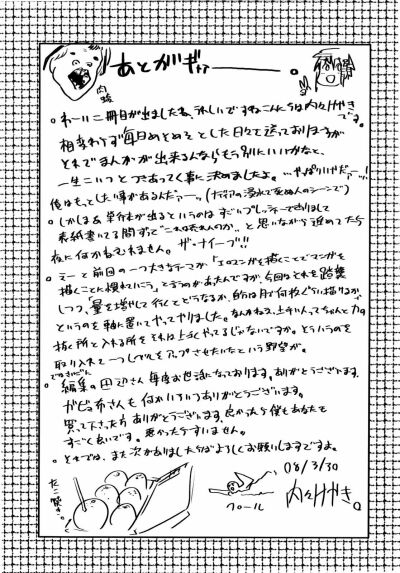 あとがきーーー。
わーい二冊目が出ましたね、うれしいですねこんにちは内々けやき
です。
相変わらず毎日めとめそとした日々を送っておりますが
それでまんがが出来るんならもう別にいいかなと、
一生こいつとつきあってく事に決めましたよ。…やっぱりいやだァー…!
僕はもっとした事があるんだァーッ
しかしまぁ単行本が出るというのはすごいプレッシャーでありまして
表紙書いてる間ずっと「これは売れんのか…」と思いながら
夜に何かねむれません。ザ・ナイーブ!!
えーと前回の一つ大きなテーマが「エロマンガを描くことでマンガを
描くことに慣れていこう」とすのがあったんですが、今回はそれを踏襲
しつつ「量を増やして行くとどうなるか、自分は月で何枚ぐらい描けるか」
というのを軸に置いてやってやりました。なんかねェ、上手い人ってちゃんと力の
抜く所と入れる所をそれは上手くやってるじゃないですか。そういうのを
取り入れて一つレベルをアップさせたいなという野望が。
できねぇけど
編集の田辺さん毎度お世話になっております。ありがとうございます。
ガビョ布さんも何かいろいろありがとうございます。
買って下さった方ありがとうございます、良かったら僕もあなたも
すごく良いです。悪かったらすいません。
ともでは、また次がありましたらばよろしくお願いしますですよ。
08/3/30
内々けやき。
プール
たこ焼き。